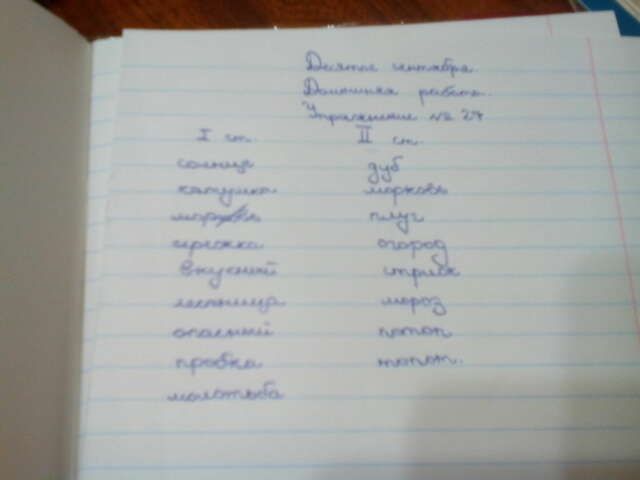 Десятое сентября.
Домашняя работа.
Упражнение № 27
I ст. II ст.
солнце дуб
катушка морковь
плуг
серёжка огород
вкусный стриж
лестница мороз
опасный потоп
пробка топот.
молотьба